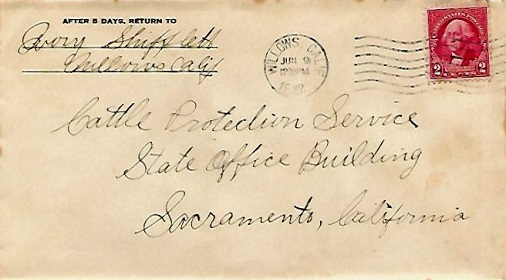 AFTER 5 DAYS, RETURN TO
Ivory Shifflett
Willows Calif
WILLOWS, CALIF.
JUN 9
12 PM
UNITED STATES POSTAGE
2 2
Cattle Protection Service
State Office Building
Sacramento, California